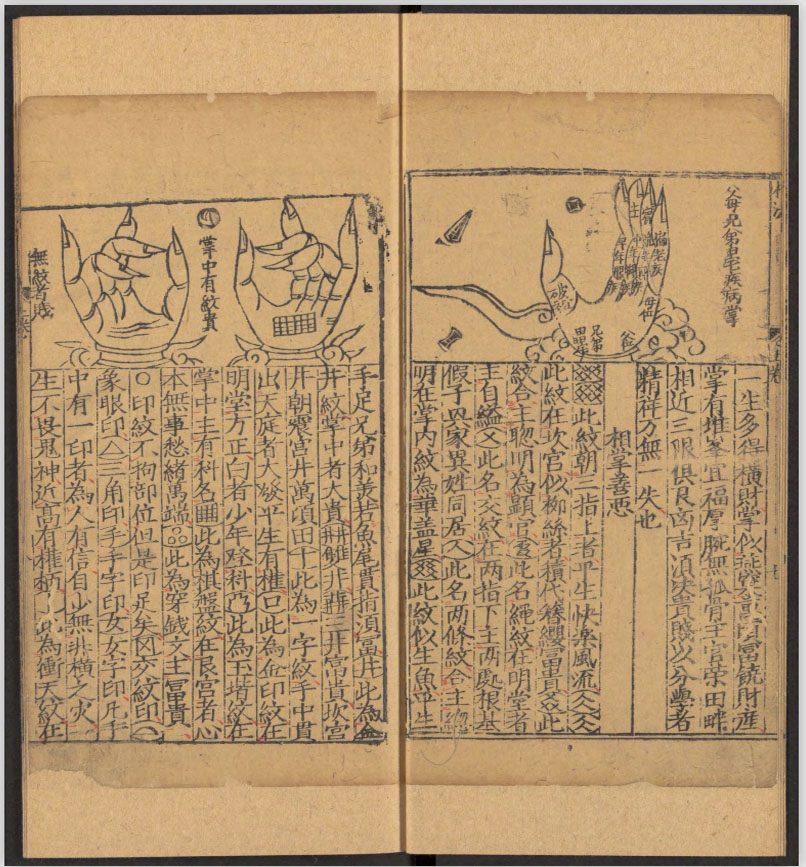 父母兄弟田宅疾病掌
破祖
兄弟
田宅
父
母位
一生多得橫財掌似燕窠最貴富饒財産
掌有堆峯宜福厚腕無孤骨主官榮田畔
相近三限俱艮凶吉須决貴賤以分學者
精祥万無一失也
相掌善悪
此紋朝三指上者平生快楽風流
此紋在坎宮似柳絲者積代簪纓冨貴爻此
紋合主聦明為顯官此名繩紋在明堂者
主自縊乂此名交紋在兩指下主两處根基
假子四家異姓同居此名两條紋合主緫
明在掌内紋為華盖星此紋似生魚平生
掌中有紋貴
無紋者賎
手足兄弟和美若魚尾貫指須冨井此為金
井紋掌中者大貴雙井三井富貴坎宮
井朝震宮井萬頃田十此為一字紋手中貫
出天庭者大發平生有權口此為金印紋在
明堂方正白者少年登科此為玉堦紋在
掌中主有科名此為棋盤紋在艮宮者心
本無事愁緒萬端此為穿錢文主冨貴
〇印紋不拘部位但是印足矣交紋印
象眼印△三角印手手字印女女字印凡手
中有一印者為人有信自少無非横之災一
生不畏鬼神近高有權柄此為衝天紋在